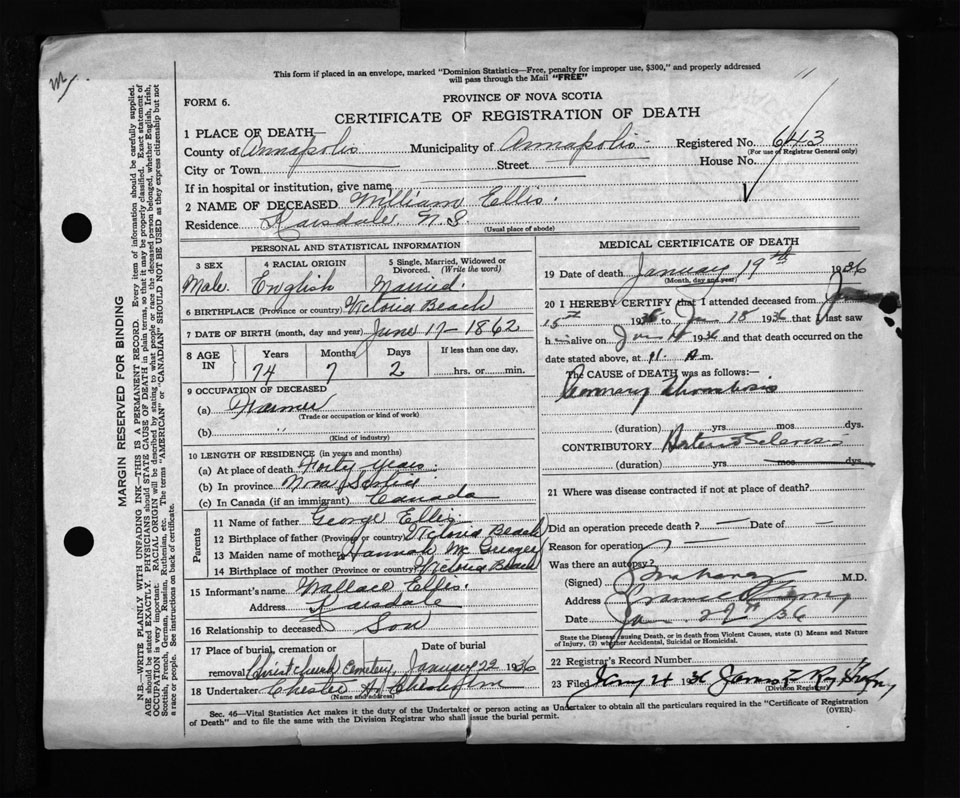 This form if placed in an envelope, marked "Dominion Statistics—Free, penalty for improper use, $300," and properly addressed
will pass through the Mail "FREE"
FORM 6.
PROVINCE OF NOVA SCOTIA
CERTIFICATE OF REGISTRATION OF DEATH
1 PLACE OF DEATH—
County of Annapolis Municipality of Annapolis Registered No. 643
(For use of Registrar General only)
City or Town Street House No.
If in hospital or institution, give name
2 NAME OF DECEASED William Ellis.
Residence Karsdale, N.S.
(Usual place of abode)
PERSONAL AND STATISTICAL INFORMATION
3 SEX 4 RACIAL ORIGIN 5 Single, Married, Widowed or Divorced. (Write the word)
Male. English Married.
6 BIRTHPLACE (Province or country) Victoria Beach
7 DATE OF BIRTH (month, day and year) June 17 – 1862
8 AGE IN Years Months Days If less than one day,
74 7 2 hrs. or min.
9 OCCUPATION OF DECEASED
(a) Farmer
(Trade or occupation or kind of work)
(b) "
(Kind of industry)
10 LENGTH OF RESIDENCE (in years and months)
(a) At place of death Forty years.
(b) In province Nova Scotia
(c) In Canada (if an immigrant) Canada
Parents
11 Name of father George Ellis
12 Birthplace of father (Province or country) Victoria Beach
13 Maiden name of mother Hannah
14 Birthplace of mother (Province or country) Victoria Beach
15 Informant's name Wallace Ellis.
Address Karsdale
16 Relationship to deceased Son
17 Place of burial, cremation or removal Date of burial
Christ Church Cemetery January 22 1936
18 Undertaker Chester
(Name and address)
MEDICAL CERTIFICATE OF DEATH
19 Date of death January 19th 1936
(Month, day and year)
20 I HEREBY CERTIFY that I attended deceased from Jan
15th 1936 to Jan 18 1936 that I last saw
him alive on Jan 1936 and that death occurred on the
date stated above, at 11. m.
The CAUSE OF DEATH was as follows:
Coronary Thrombosis
(duration) yrs. mos. dys.
CONTRIBUTORY Arterio Sclerosis
(duration) yrs. mos. dys.
21 Where was disease contracted if not at place of death?
Did an operation precede death? — Date of —
Reason for operation —
Was there an autopsy?
(Signed) M.D.
Address
Date Jan. 22nd /36
State the Disease Causing Death, or in death from Violent Causes, state (1) Means and Nature
of Injury, (2) whether Accidental, Suicidal or Homicidal.
22 Registrar's Record Number
23 Filed 24 1936 James
(Division Registrar)
Sec. 46—Vital Statistics Act makes it the duty of the Undertaker or person acting as Undertaker to obtain all the particulars required in the "Certificate of Registration
of Death" and to file the same with the Division Registrar who shall issue the burial permit.
(OVER)
MARGIN RESERVED FOR BINDING
N.B.—WRITE PLAINLY WITH UNFADING INK—THIS IS A PERMANENT RECORD. Every item of information should be carefully supplied.
AGE should be stated EXACTLY. PHYSICIANS should STATE CAUSE OF DEATH in plain terms, so that it may be properly classified. Exact statement of
OCCUPATION is very important. RACIAL ORIGIN will be described by stating to what people or race the deceased person belonged, whether English, Irish,
Scottish, French, German, Russian, Ruthenian, etc. The terms "AMERICAN" or "CANADIAN" SHOULD NOT BE USED as they express citizenship but not
a race or people. See instructions on back of certificate.